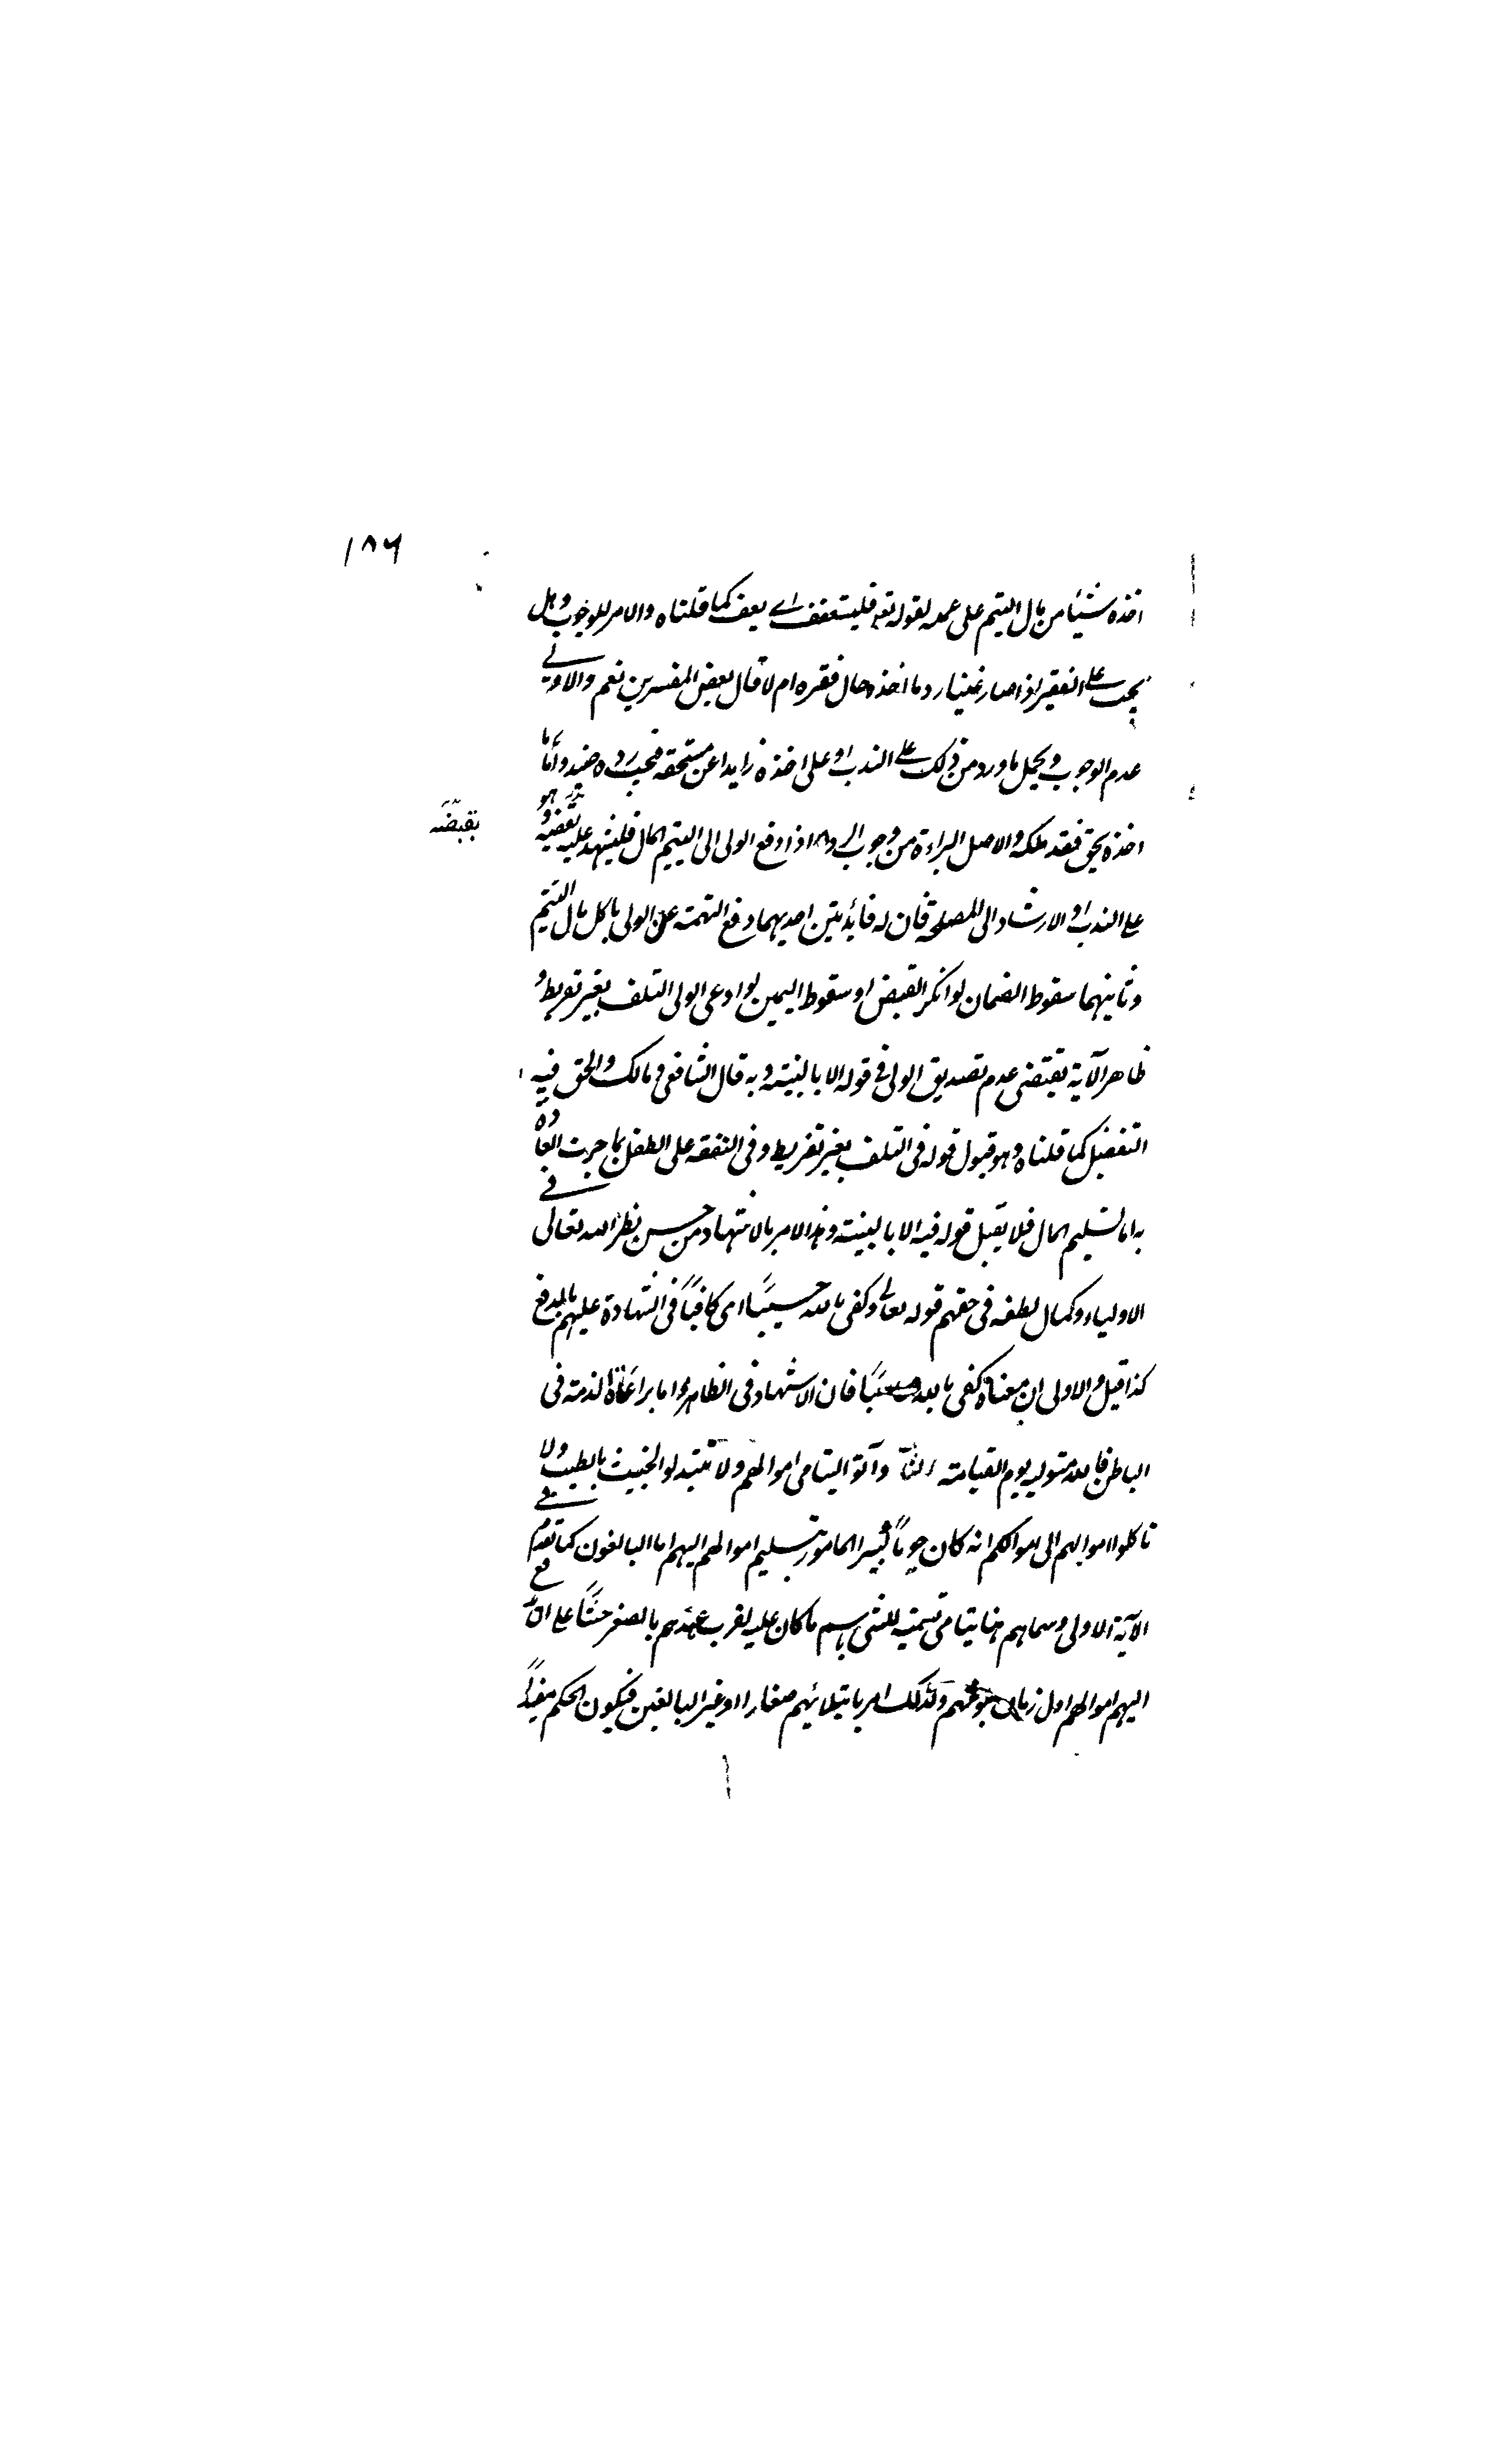 ١٨٦
اخذه شيئا من مال اليتيم على عمله لقوله تع فليستعفف اے يعف كما قلناه والامر للوجوب وهل
يجب على الفقير اذا صار غنيا رد ما اخذه حال فقره ام لا قال بعض المفسرين نعم والاولى
عدم الوجوب ويحمل ما ورد من ذلك على الندب او على اخذه زايدا عن مستحقه فيجب رده حينئذ واما ما
اخذه بحق فقد ملكه والاصل البراءة من وجوب الرد اذا دفع الولى الى اليتيم المال فليشهد عليه بقبضه وهو
بقبضه
على الندب او الارشاد الى المصلحة فان له فائدتين احديهما دفع التهمة عن الولى باكل مال اليتيم
وثانيهما سقوط الضمان لو انكر القبض او سقوط اليمين لو ادعى الولى التلف بغير تفريط و
ظاهر الآية يقتضى عدم تصديق الولى فى قوله الا بالبينة وبه قال الشافعى ومالك والحق فيه
التفصيل كما قلناه وهو قبول قوله فى التلف بغير تفريط وفى النفقة على الطفل بما جرت العادة
به اما تسليم المال فلا يقبل قوله فيه الا بالبينة وهذا الامر بالاشهاد من حسن نظر الله تعالى فى
الاولياء وكمال لطفه فى حقهم قوله تعالى وكفى بالله حسيبًا اى كافيًا فى الشهادة عليهم بالدفع
كذا قيل والاولى ان معناه كفى بالله محاسبًا فان الاشهاد فى الظاهر واما براءة الذمة فى
الباطن فالله متوليه يوم القيامة الثا وآتوا اليتامى اموالهم ولا تتبدلوا الخبيث بالطيب ولا
تاكلوا اموالهم الى اموالكم انه كان حوبًا كبيرا المامور بتسليم اموالهم اليهم اما البالغون كما تقدم فى
الآية الاولى وسماهم هنا يتامى تسمية للشى باسم ما كان عليه لقرب عهدهم بالصغر حثًا على ان يدفع
اليهم اموالهم اول زمان بلوغهم ولذلك امر بابتلائهم صغارا او غير البالغين فيكون الحكم مقيدًا